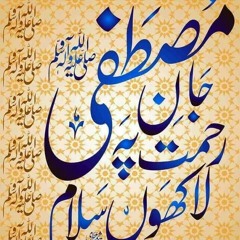 مصطفیٰ
جانِ
رحمت پہ
لاکھوں سلام
صلی اللہ علیہ وآلہ وسلم
صلی اللہ علیہ وآلہ وسلم
صلی اللہ علیہ وآلہ وسلم
صلی اللہ علیہ وآلہ وسلم
صلی اللہ علیہ وآلہ وسلم
صلی اللہ علیہ وآلہ وسلم